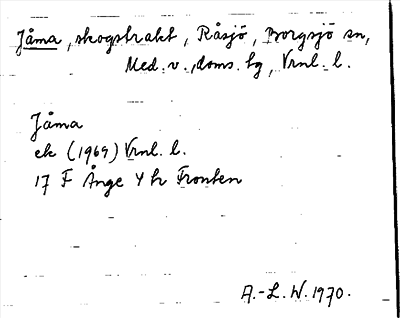 Jåma, skogstrakt, Råsjö, Borgsjö sn,
Med. v., doms. tg, Vrnl. l.
Jåma
ek (1969) Vrnl. l.
17 F Ånge Y h Fronten
A.-L. W. 1970.